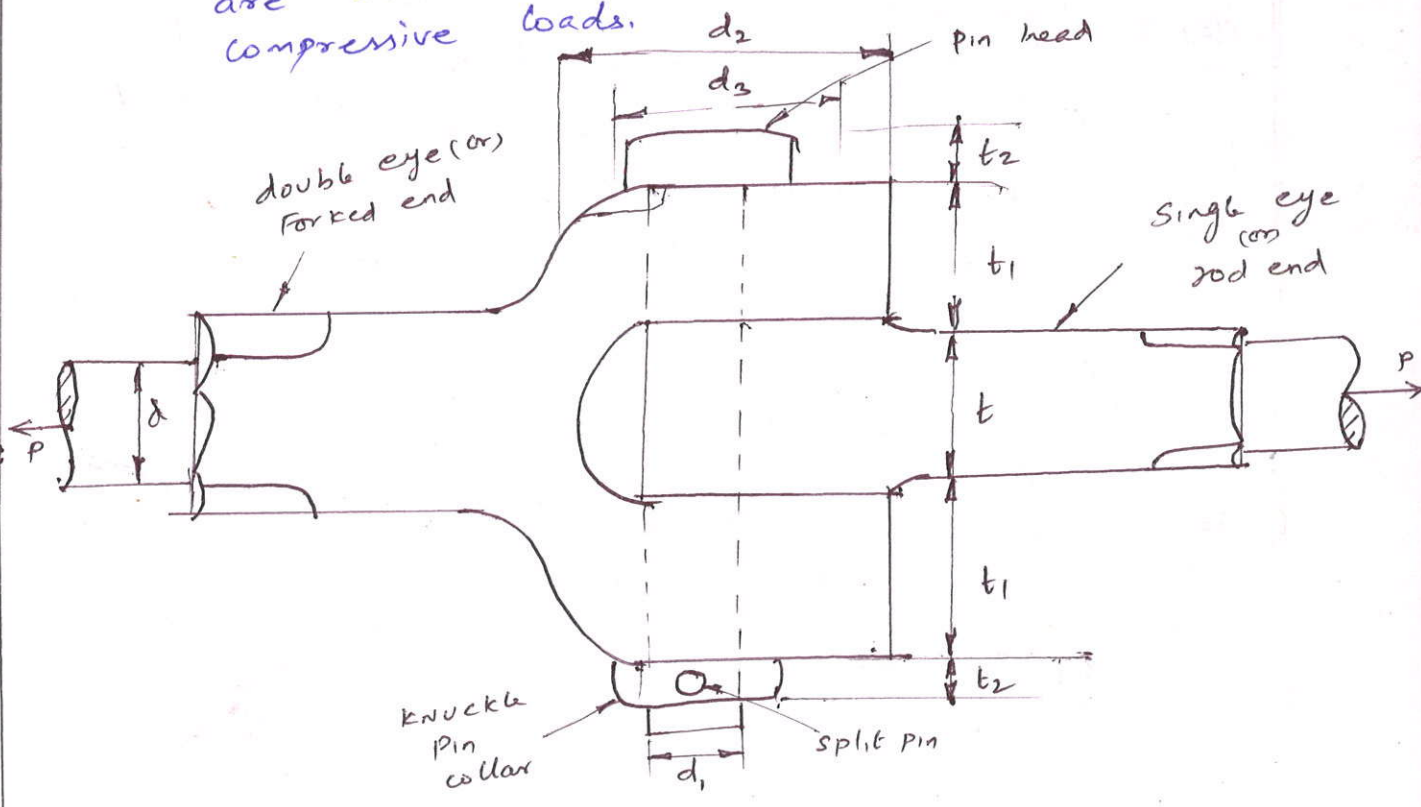 are
compressive loads.
d2
pin head
d3
t2
double eye (or)
Forked end
Single eye
(or)
rod end
t1
d
t
P
P
t1
t2
Knuckle
Pin
collar
split pin
d1